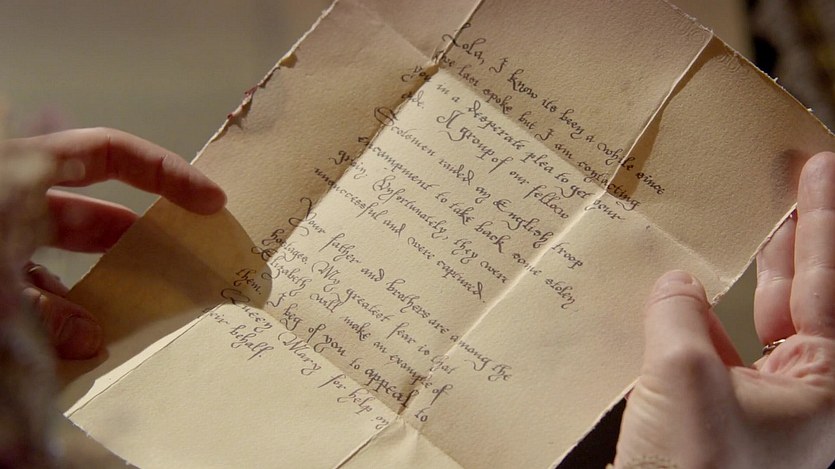 Lola, I know its been a while since
we last spoke but I am contacting
you in a desperate plea to get your
aide. A group of our fellow
Scotsmen raided my English troop
encampment to take back some stolen
grain. Unfortunately, they were
unsuccessful and were captured.
Your father and brothers are among the
hostages. My greatest fear is that
Elizabeth will make an example of
them. I beg of you to appeal to
Queen Mary for help on
their behalf.